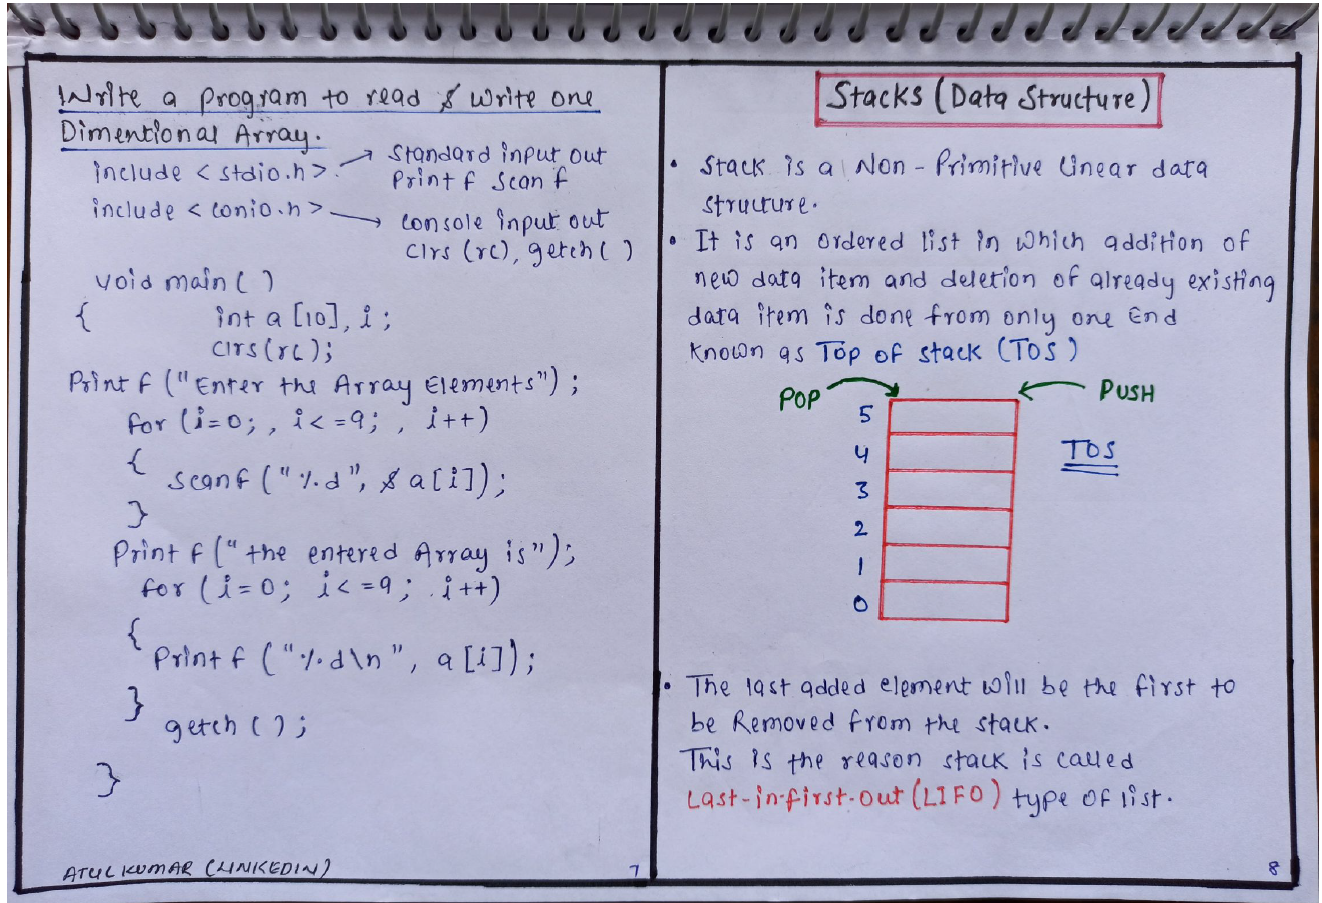 Write a program to read & write one
Dimentional Array.
include < stdio.h >. → Standard input out
Print f Scan f
include < conio.h >. → Console input out
Clrs (rc), getch ( )
void main ( )
{ int a [10], i ;
Clrs (rc);
Print f ("Enter the Array Elements") ;
for (i=0; , i< =9; , i++)
{
scanf ("%d", & a[i]);
}
Print f (" the entered Array is");
for (i=0; i< =9; i++)
{
Print f ("%d\n", a [i]);
}
getch ( );
}
ATUL KUMAR (LINKEDIN)
7
Stacks (Data Structure)
• Stack is a Non - Primitive linear data
structure.
• It is an ordered list in which addition of
new data item and deletion of already existing
data item is done from only one End
Known as Top of stack (TOS)
POP PUSH
5
4 TOS
3
2
1
0
• The last added element will be the first to
be Removed from the stack.
This is the reason stack is called
Last-in-first-out (LIFO) type of list.
8